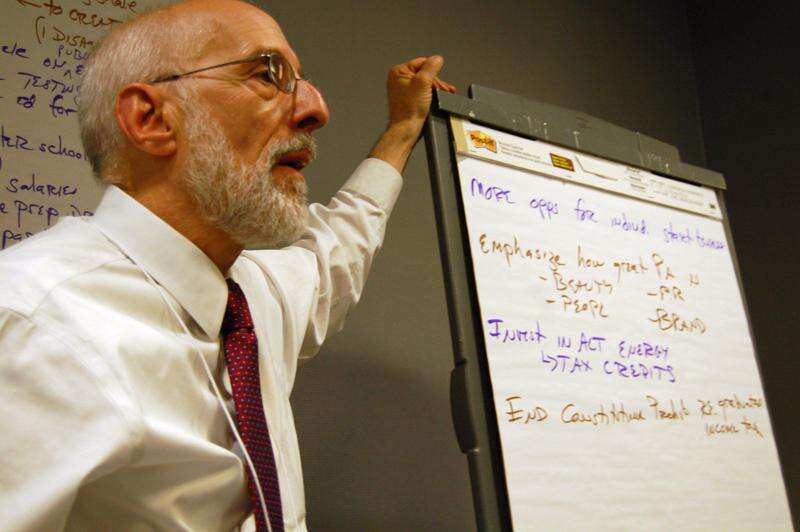 to CREATE
(1 DISA
PUBL
ON
TESTING
ed for
TER school
Salaries
e prep
pas
Post-it
More opps for individ.
Emphasize how great PA is
- Beauty - PR
- People - BRAND
Invest in ACT ENERGY
↳ TAX CREDITS
End Constitution Prohib re. graduated
income tax